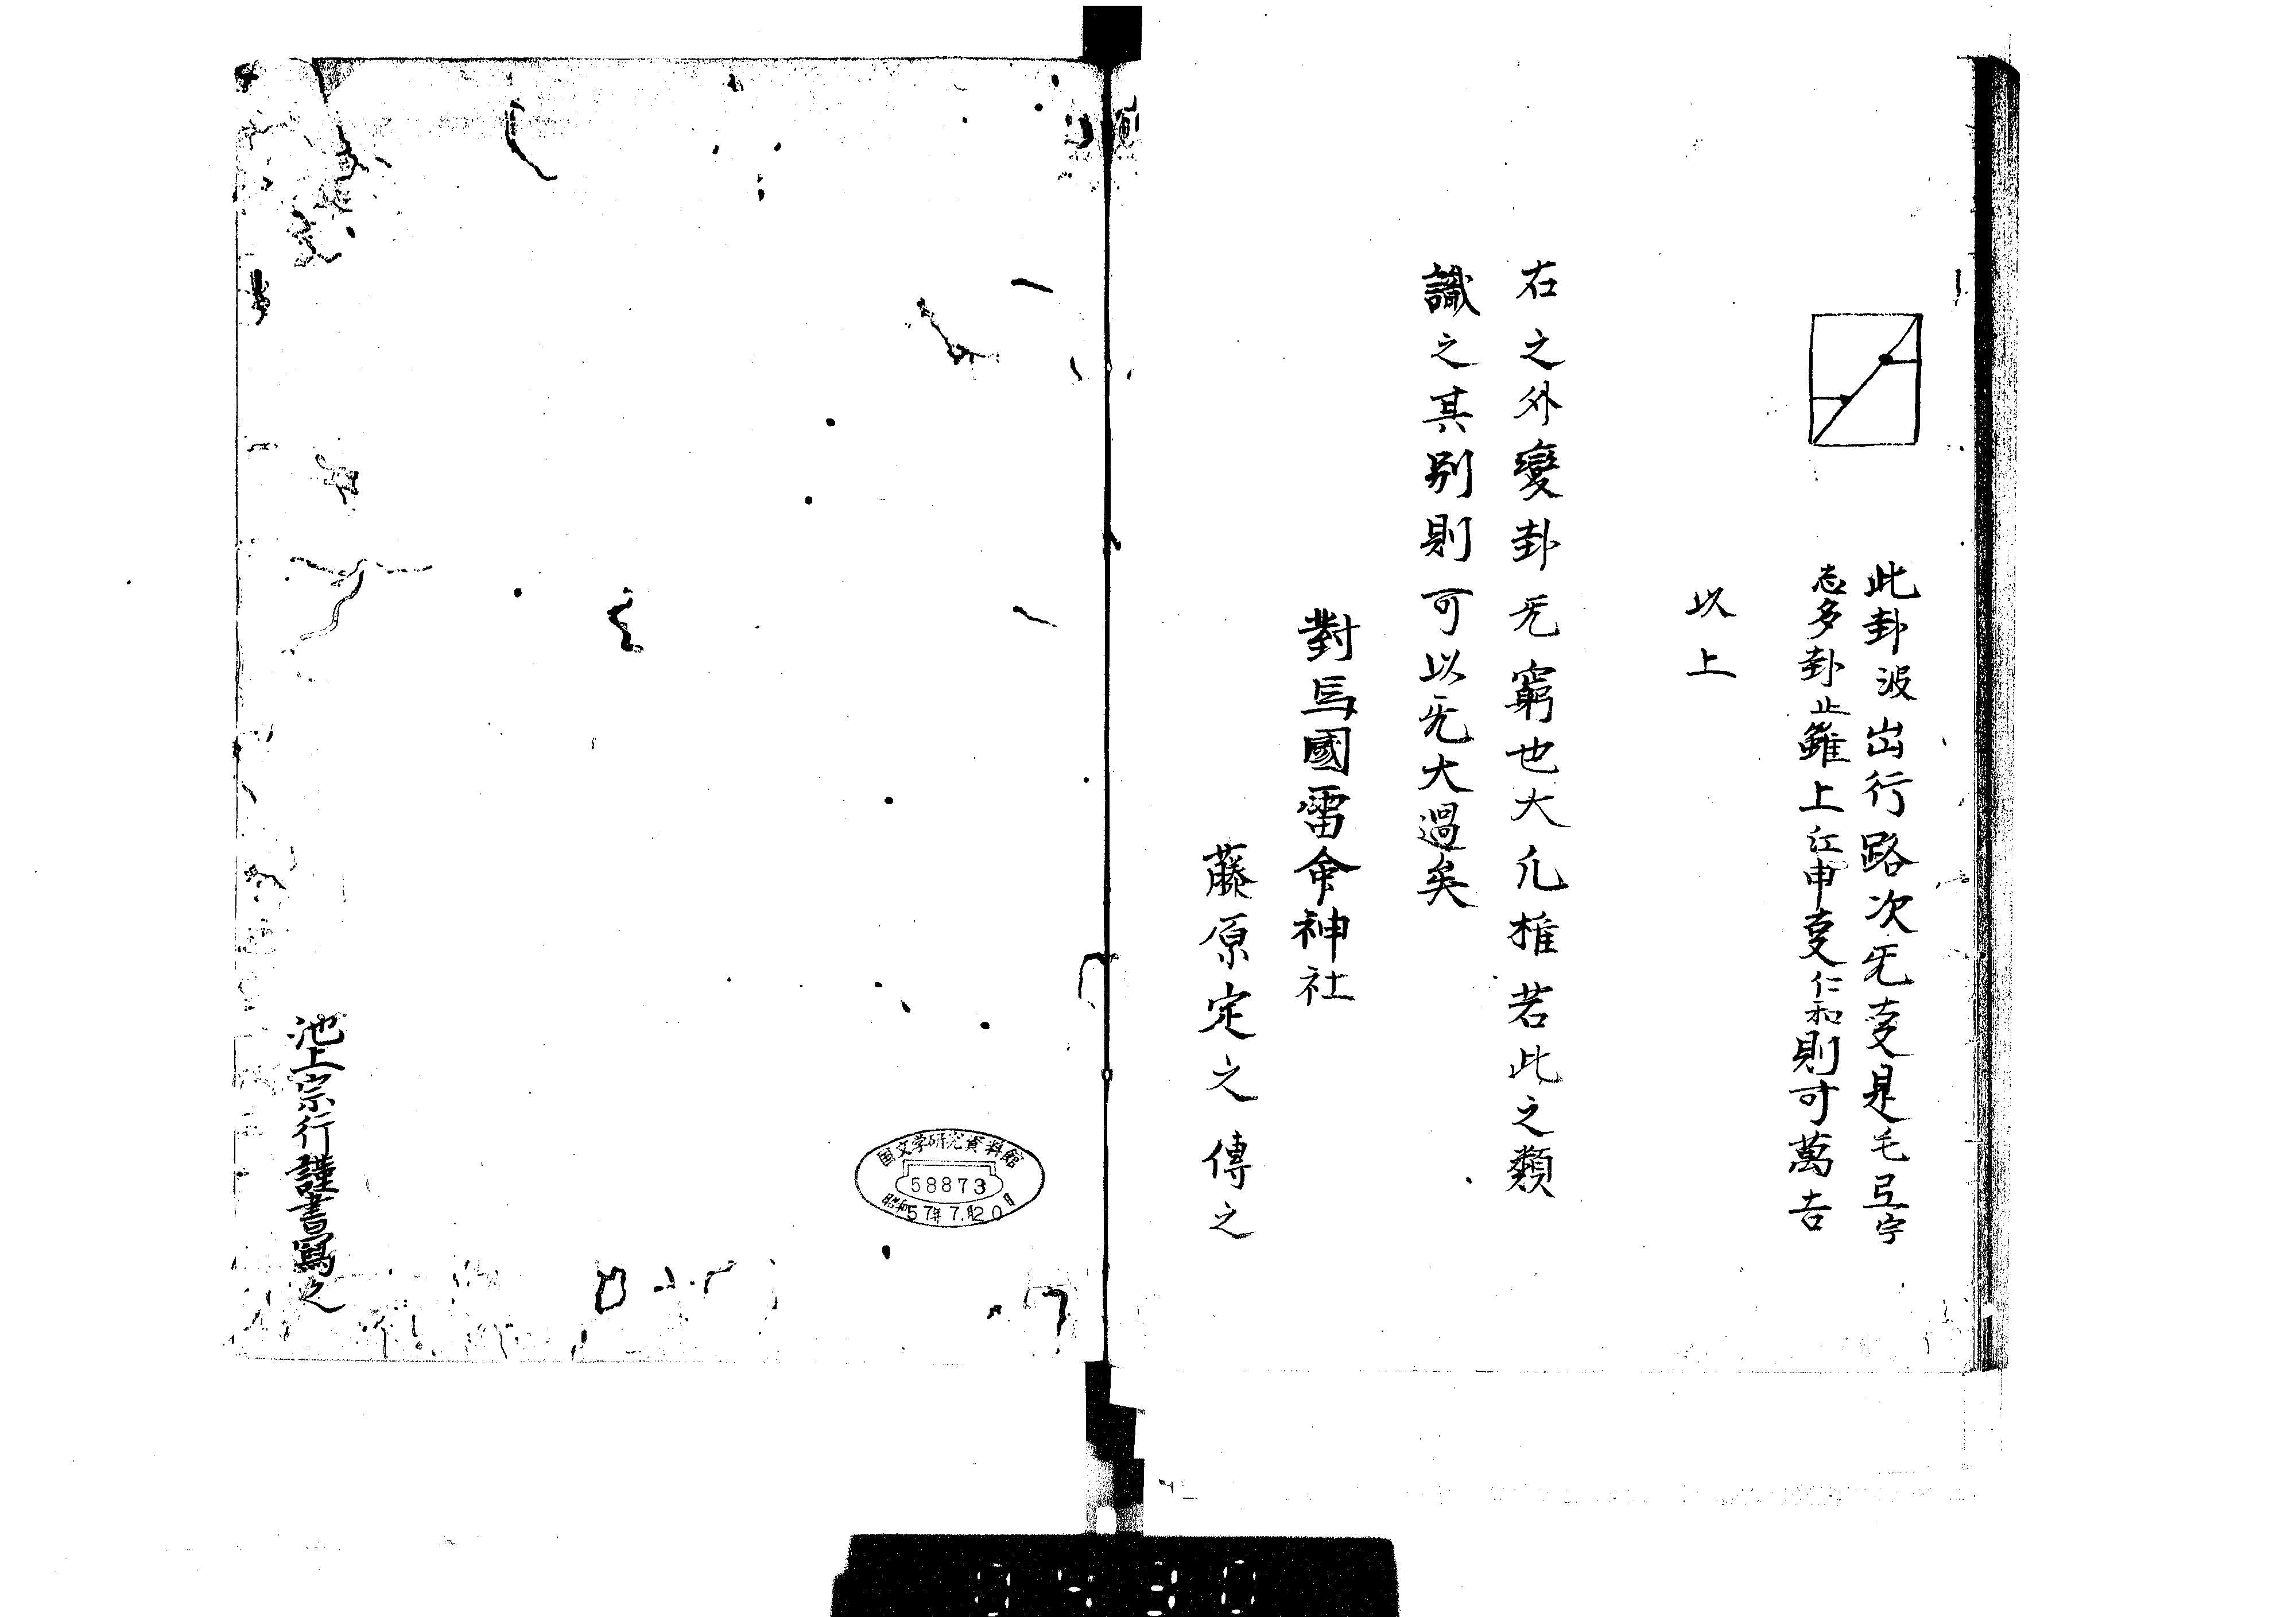 此卦波出行路次无叓是毛弖宇
志多卦止雖上江申叓仁和則可萬吉
以上
右之外變卦无窮也大凢推若此之類
識之其别則可以无大過矣
對馬國雷命神社
藤原定之傳之
国文学研究資料館
58873
昭和57年7月20日
池上宗行謹書寫之